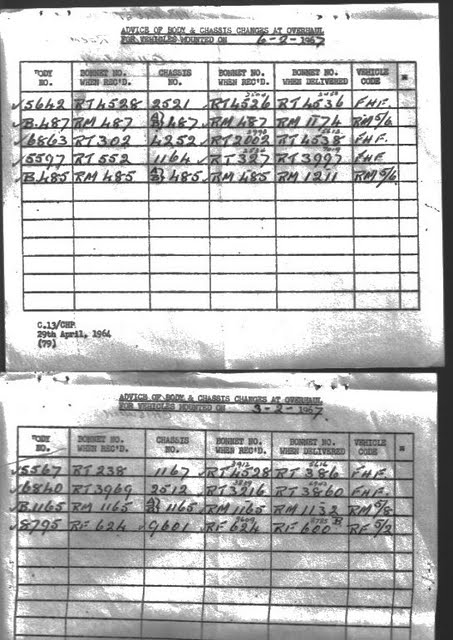 ADVICE OF BODY & CHASSIS CHANGES AT OVERHAUL
FOR VEHICLES MOUNTED ON 6-2-1967
BODY NO. BONNET NO. WHEN REC'D. CHASSIS NO. BONNET NO. WHEN REC'D. BONNET NO. WHEN DELIVERED VEHICLE CODE
5642 RT4528 2521 RT4526 RT4536 FHF.
B.487 RM 487 487 RM 487 RM 1174 RM 5/6
6863 RT302 4252 RT2002 RT4538 FHF.
5597 RT 552 1164 RT327 RT3997 FHF
B.485 RM 485 485 RM 485 RM 1211 RM 5/6
C.13/CHP
29th April, 1964
(79)
ADVICE OF BODY & CHASSIS CHANGES AT OVERHAUL
FOR VEHICLES MOUNTED ON 3-2-1967
BODY NO. BONNET NO. WHEN REC'D. CHASSIS NO. BONNET NO. WHEN REC'D. BONNET NO. WHEN DELIVERED VEHICLE CODE
5567 RT 238 1167 RT4528 RT 386 FHF.
6840 RT3969 2512 RT3216 RT3860 FHF.
B.1165 RM 1165 1165 RM 1165 RM 1132 RM 5/8
8795 RF 624 9601 RF 624 RF 600 RF 5/2